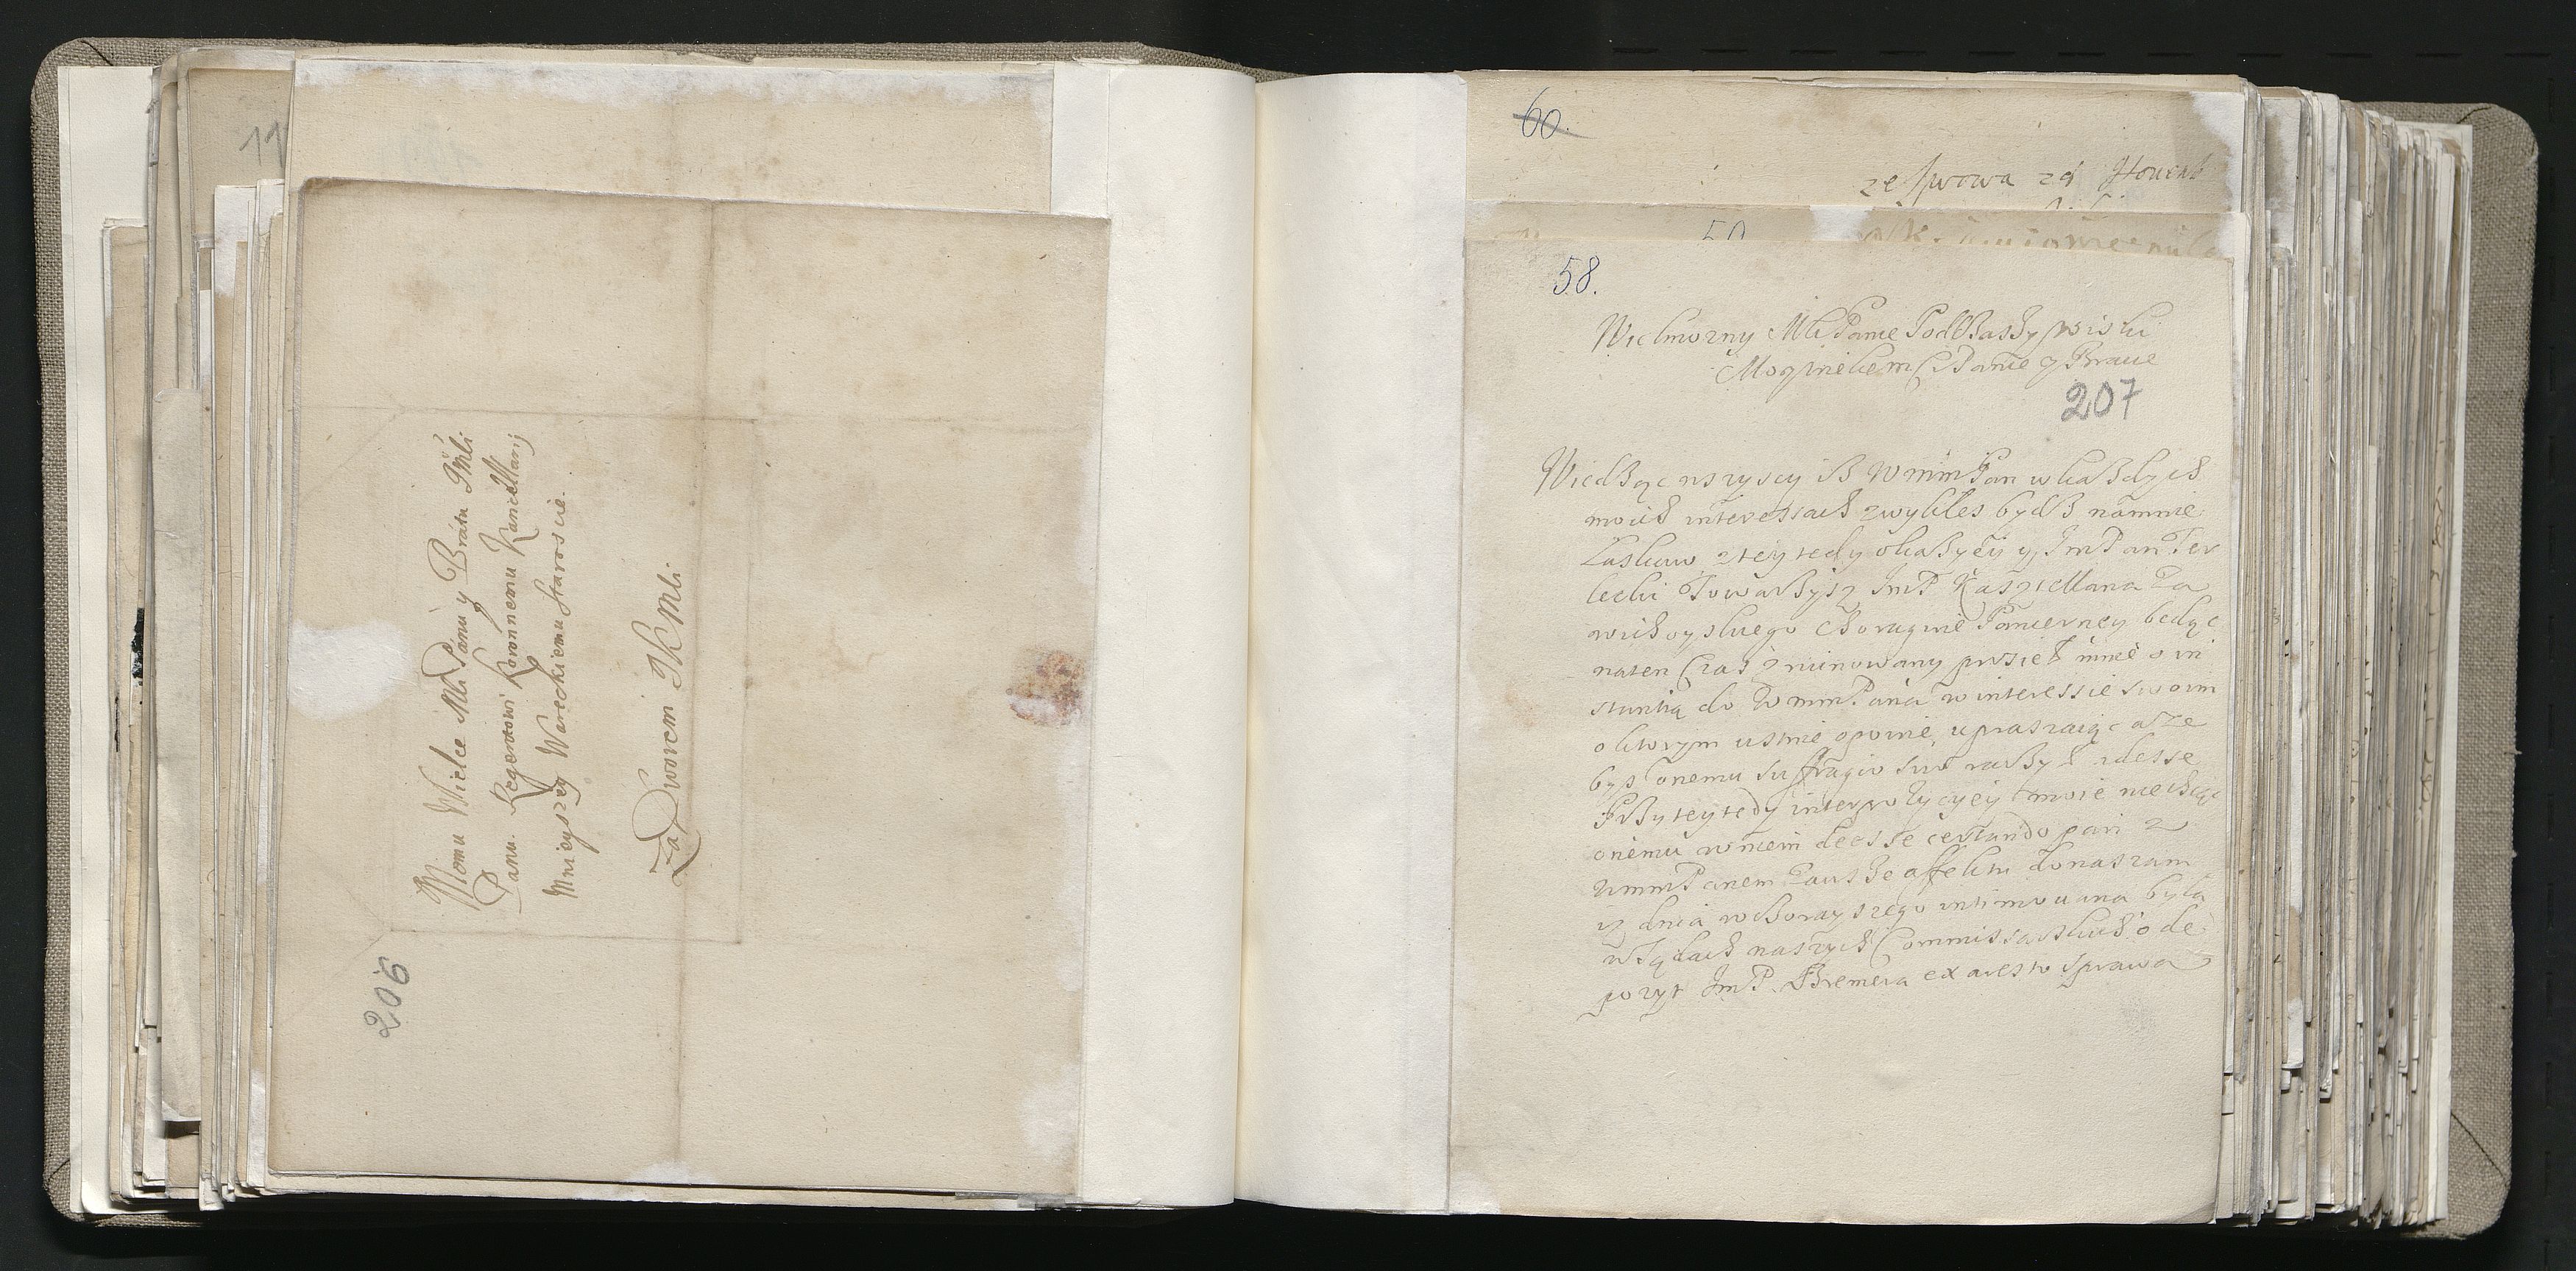 206
Memu Wielce Mli Panu y Bratu JKMli
Panu Regentowi Koronnemu Kancellarij
Mnieyszey Wareckiemu Staroscie.
Za Dworem JKMli
60.
ze Lwowa za
50
58.
Wielmozny Mli Panie
Panie y Bracie
207
Wiedząc wszyscy iz WmmPan w kazdych
moich interessach zwykles bydz namnie
Laskaw z tey tedy okazyey y ImPan Ter
lecki Towarzysz ImP Kasztellana Za
wichoyskiego Choragwie Pancerney będąc
naten Czas przez mnie o in
stantią do WmmPana w interessie swoim
o ktorym ustnie opowie, upraszaiąc aze
bys onemu suffragio swo raczył adesse
Przy tey tedy interpozycyey moie niechcąc
onemu w niem deesse certando pari z
WmmPanem affektu donaszam
iz dnia wczorayszego intimowana była
w Sądach naszych Commissarskich o de
pozyt ImP. Bremera ex aresto sprawa